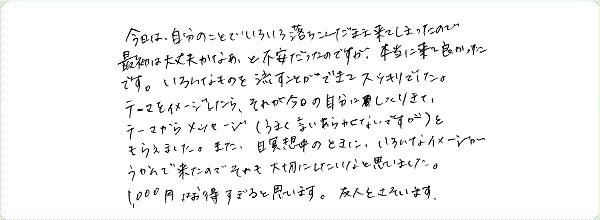 今日は、自分のことでいろいろ落ちこんだまま来てしまったので
最初は大丈夫かなぁ、と不安だったのですが、本当に来て良かった
です。いろんなものを流すことができてスッキリでした。
テーマをイメージしたら、それが今日の自分に しっくりきて、
テーマからメッセージ(うまく言いあらわせないですが)を
もらえました。また、瞑想中のときに、いろんなイメージが
うかんで来たのでそれも大切にしたいなと思いました。
1,000円はお得すぎると思います。友人をさそいます。